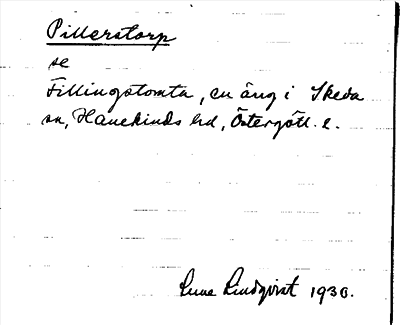 Pillerstorp
se
Fillingstomta, en äng i Skeda
sn, Hanekinds hd, Östergötl. l.
Rune Lindqvist 1930.